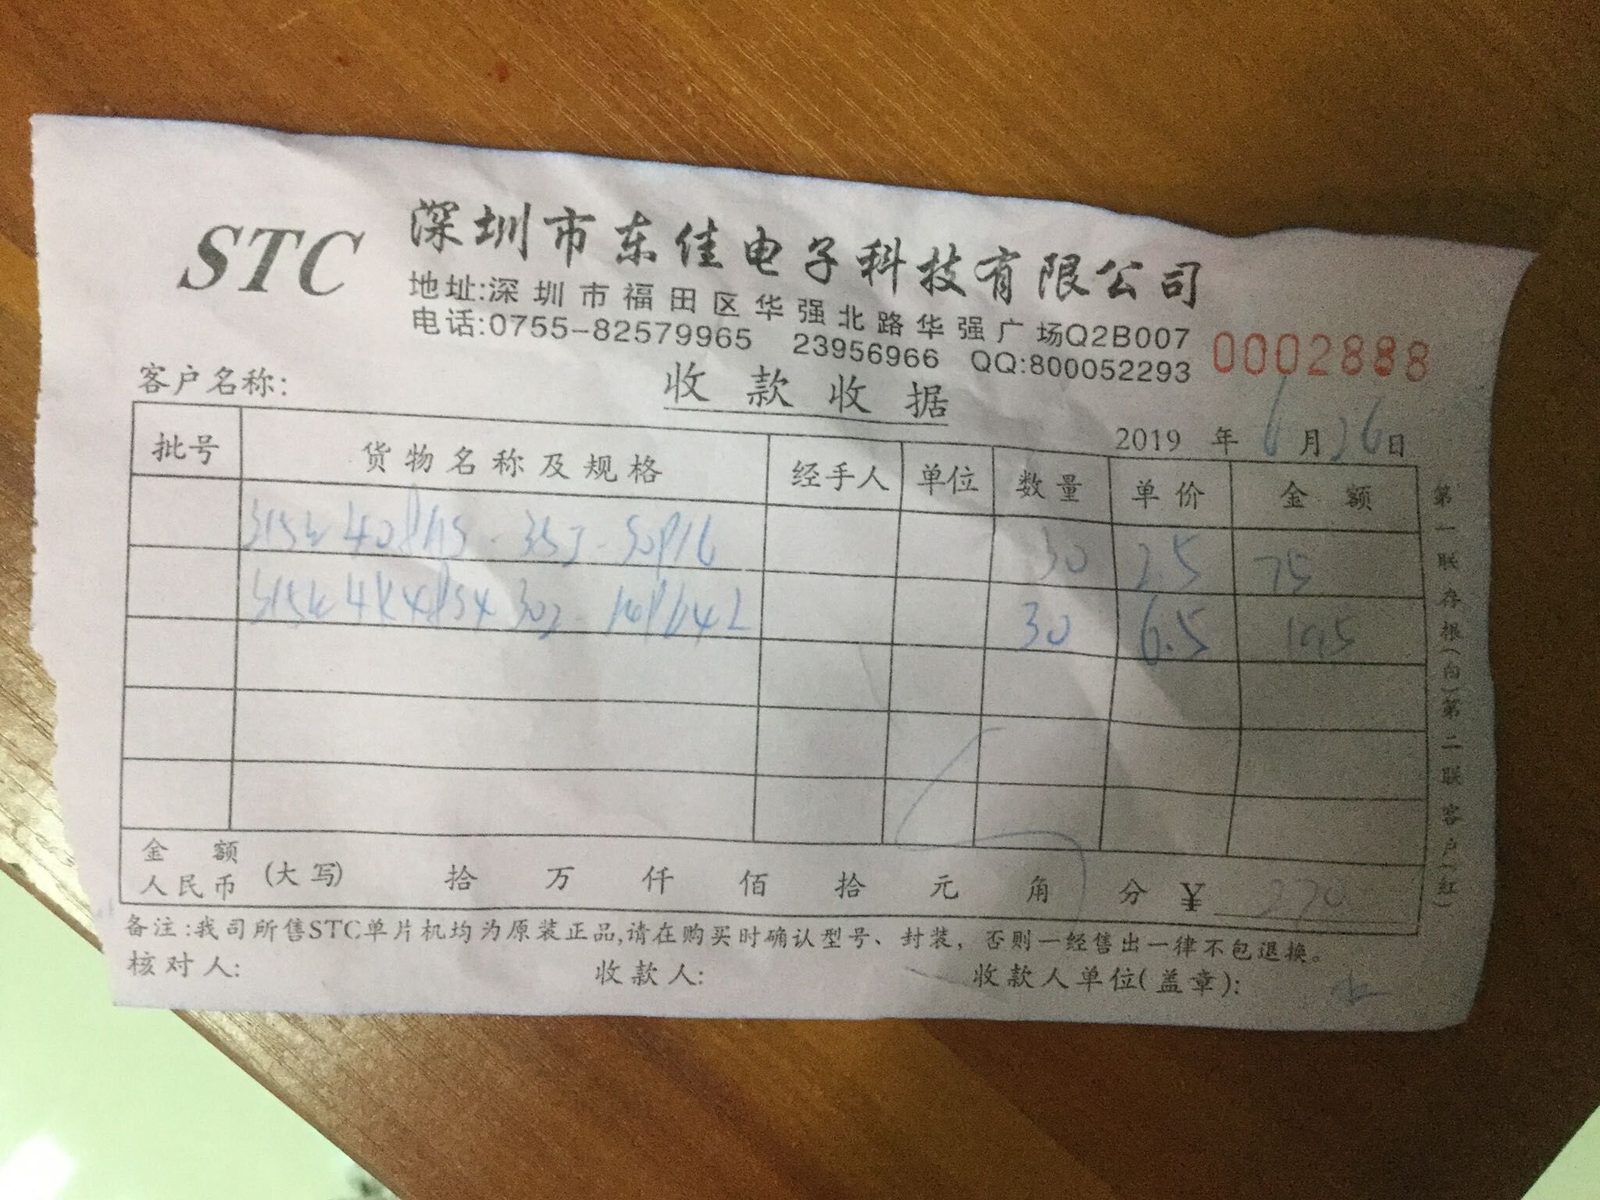 STC 深圳市东佳电子科技有限公司
地址:深圳市福田区华强北路华强广场Q2B007
电话:0755-82579965 23956966 QQ:800052293
0002888
客户名称: 收款收据
2019 年 6 月 26 日
批号 货物名称及规格 经手人 单位 数量 单价 金额
30 2.5 75
30 6.5 195
金额
人民币 (大写) 拾 万 仟 佰 拾 元 角 分 ¥ 270
备注:我司所售STC单片机均为原装正品,请在购买时确认型号、封装，否则一经售出一律不包退换。
核对人: 收款人: 收款人单位(盖章):
第一联存根(白)第二联客户(红)